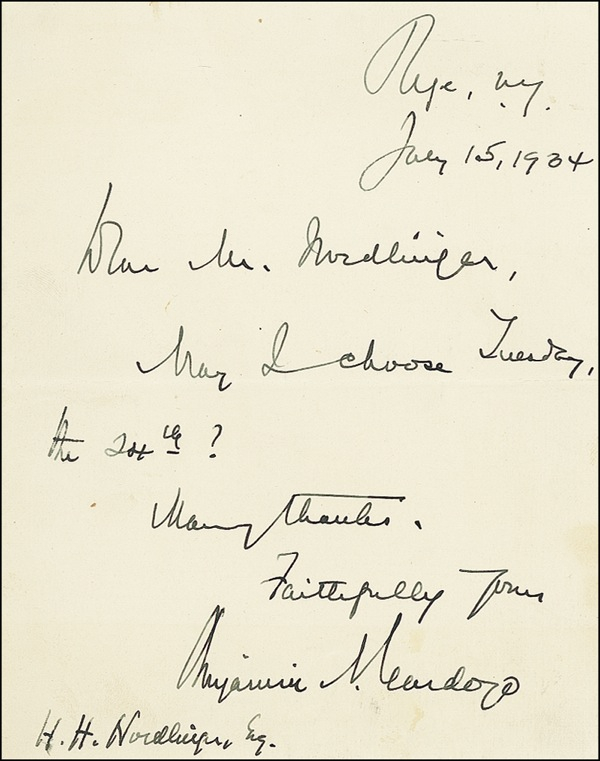 Rye, N.Y.
July 15, 1934
Dear Mr. Nordlinger,
May I choose Tuesday,
the 24th ?
Many thanks.
Faithfully yours
Benjamin N. Cardozo
H. H. Nordlinger, Esq.